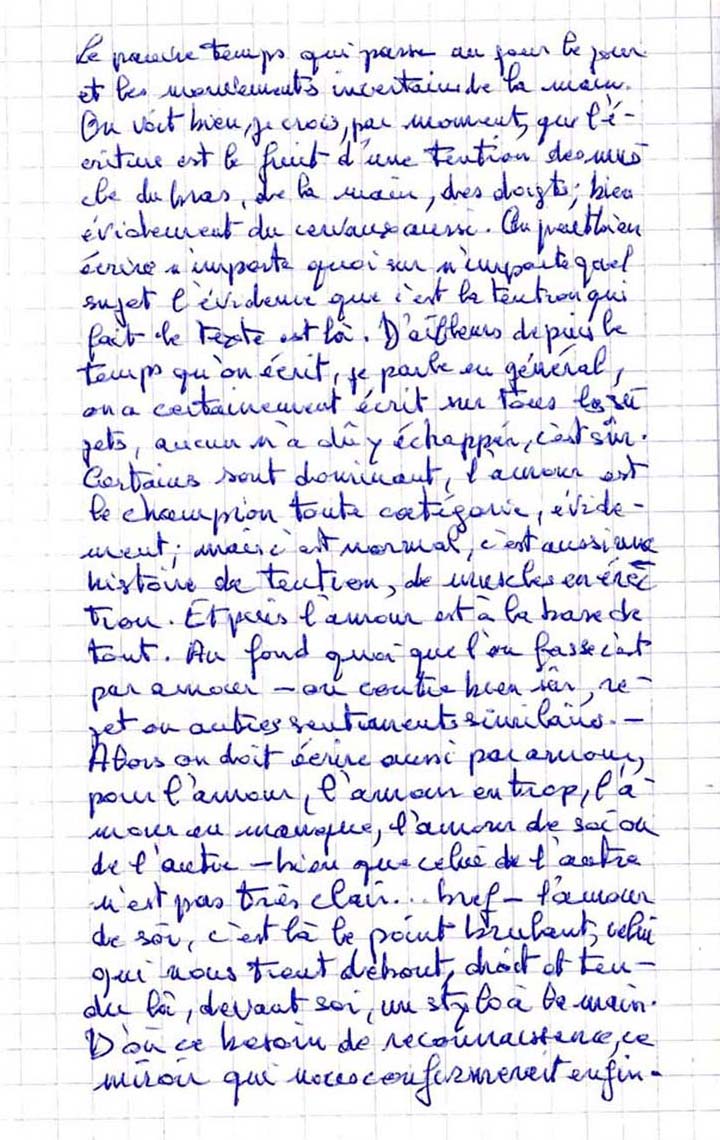 Le pauvre temps qui passe au jour le jour
et les mouvements incertains de la main.
On voit bien, je crois, par moment, que l'é-
criture est le fruit d'une tention des mus
cle du bras, de la main, des doigts; bien
évidement du cerveau aussi. On peut bien
écrire n'importe quoi sur n'importe quel
sujet l'évidence que c'est la tention qui
fait le texte est là. D'ailleurs depuis le
temps qu'on écrit, je parle en général,
on a certainement écrit sur tous les su
jets, aucun n'a dû y échapper, c'est sûr.
Certains sont dominant, l'amour est
le champion toute catégorie, évide-
ment; mais c'est normal, c'est aussi une
histoire de tention, de muscles en érec
tion. Et puis l'amour est à la base de
tout. Au fond quoi que l'on fasse c'est
par amour - ou contre bien sûr, re-
jet ou autres sentiments similaires. -
Alors on doit écrire aussi par amour,
pour l'amour, l'amour en trop, l'a-
mour en manque, l'amour de soi ou
de l'autre - bien que celui de l'autre
n'est pas très clair... bref - l'amour
de soi, c'est là le point brulant, celui
qui nous tient debout, droit et ten-
du là, devant soi, un stylo à la main.
D'où ce besoin de reconnaissance, ce
miroir qui nous confirmerait enfin-